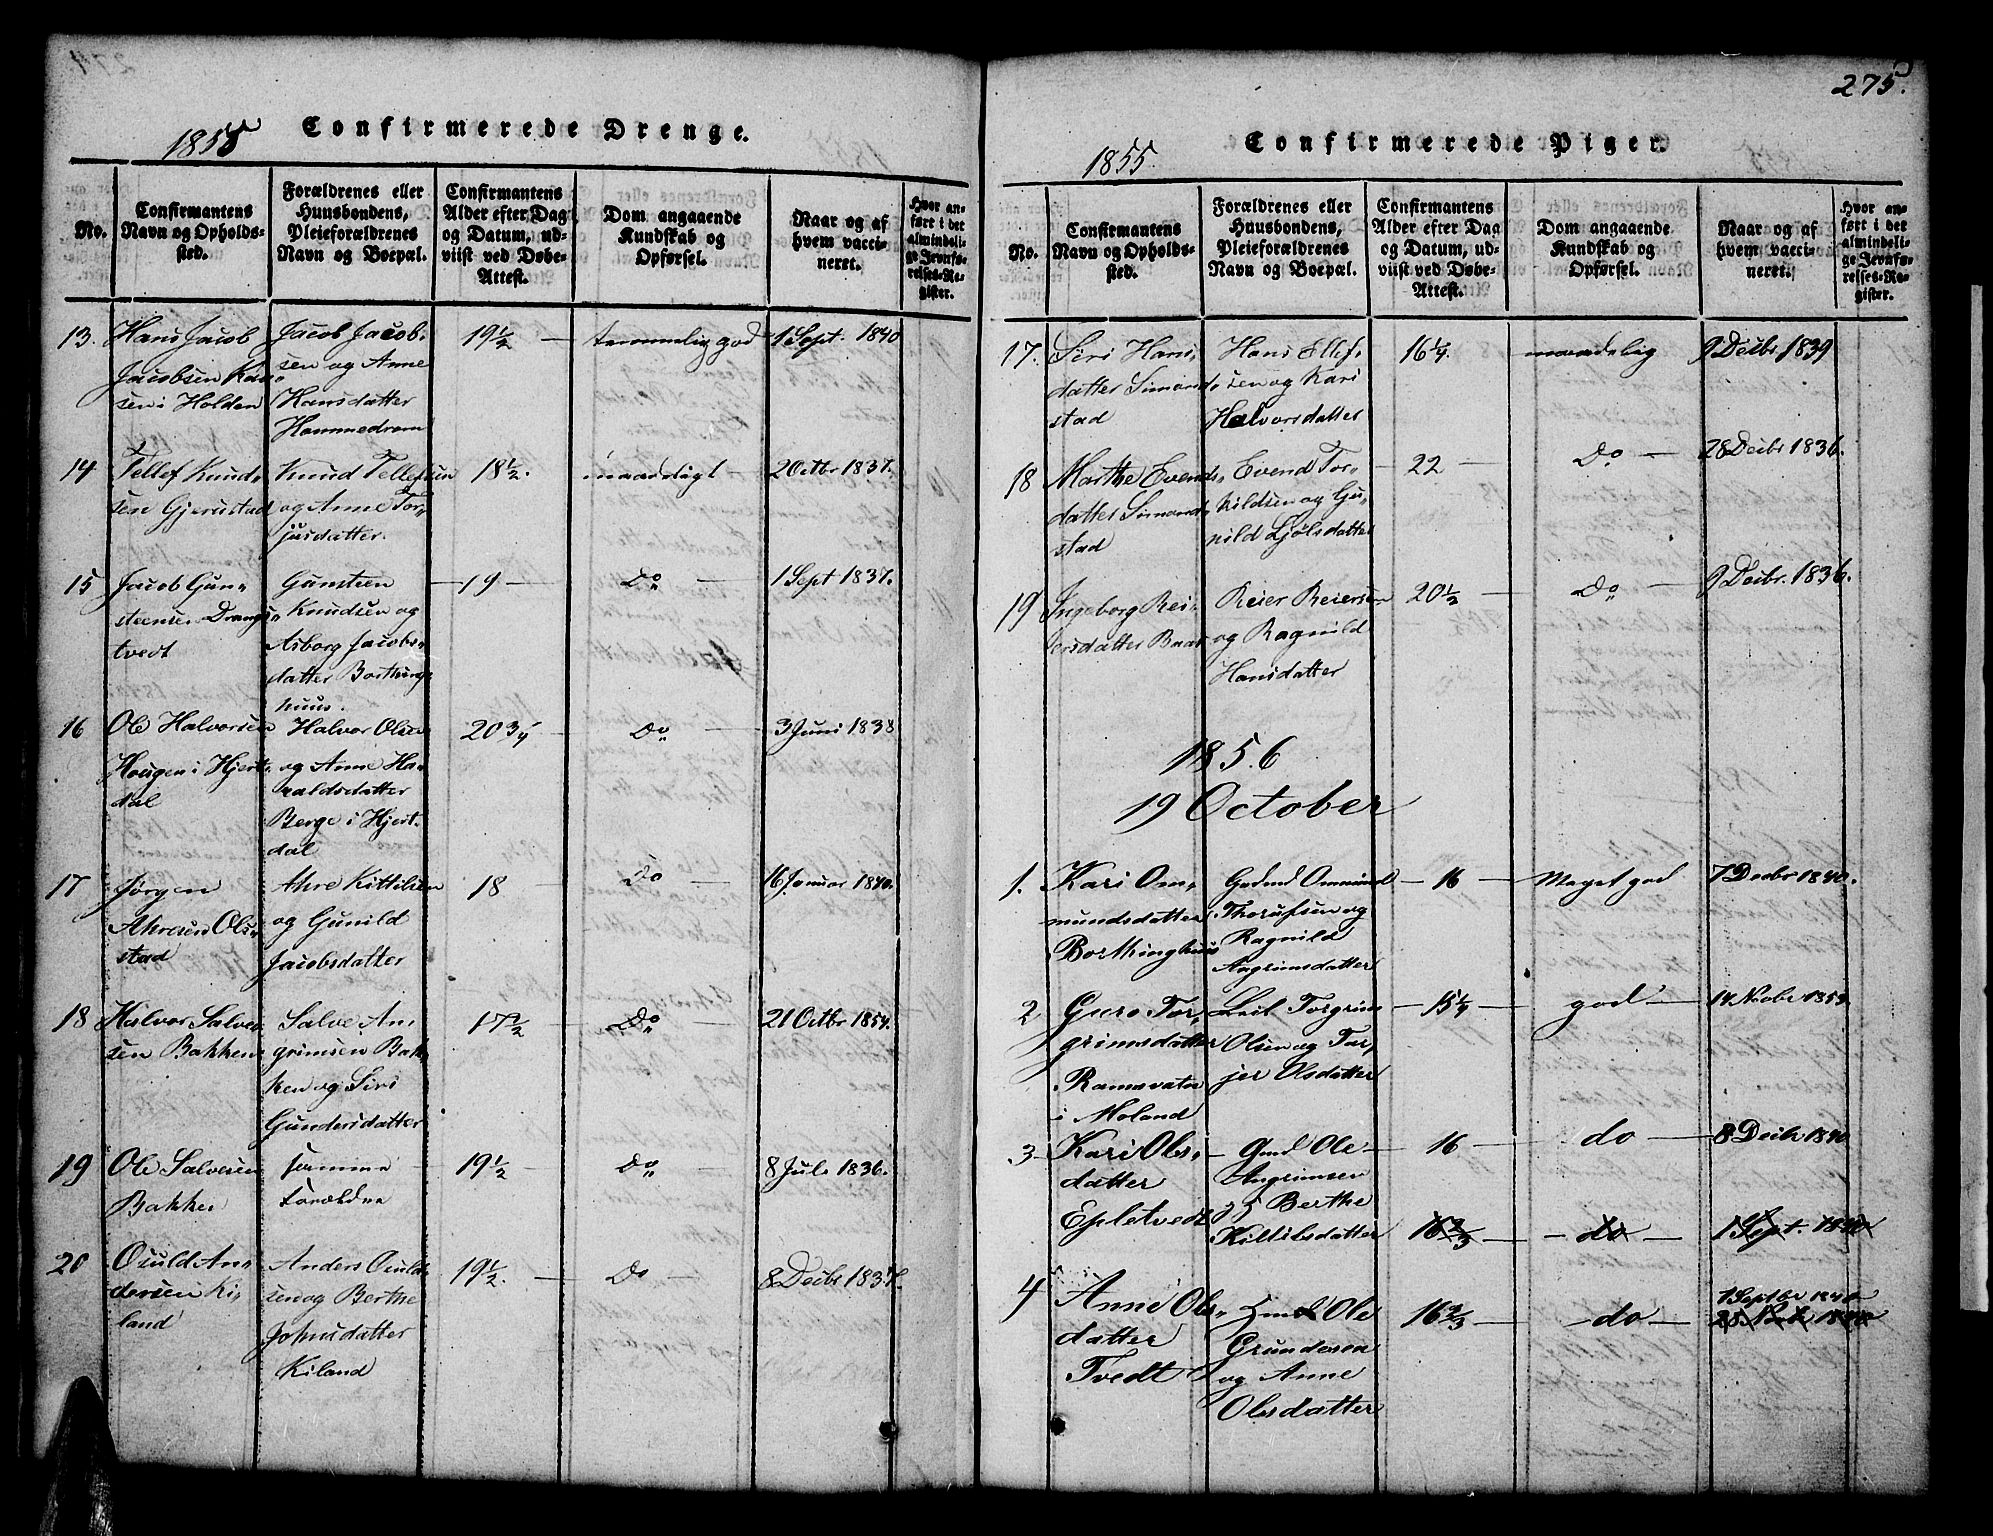 275.
Confirmerede Drenge.
1855
No.
Confirmantens
Navn og Opholds-
sted.
Forældrenes eller
Huusbondens,
Pleieforældrenes
Navn og Boepæl.
Confirmantens
Alder efter Dag
og Datum, ud-
viist ved Døbe-
Attest.
Dom angaaende
Kundskab og
Opførsel.
Naar og af
hvem vacci-
neret.
Hvor an-
ført i det
almindeli-
ge Jevnfø-
relses-Re-
gister.
13.
Hans Jacob
Jacobsen
sen i Holden
Jacob Jacob-
sen og Anne
Hansdatter
19 1/2
temmelig god
1 Sept. 1840
14
Tellef Knud-
sen Gjerustad
Knud Tellefsen
og Anne Tor-
jusdatter
18 1/2.
maadeligt
2 Octbr 1837.
15
Jacob Gun-
steensen Drangs-
tvedt
Gunsteen
Knudsen og
Asborg Jacobs-
datter Borthing-
huus.
19
Do
1 Sept 1837.
16
Ole Halvorsen
Hougen i Hjert-
dal
Halvor Olsen
og Anne Ha-
raldsdatter
Berge i Hjert-
dal
20 3/4
Do
3 Juni 1838
17
Jørgen
Ahresen Ols-
stad
Ahre Kittilsen
og Gunild
Jacobsdatter
18
Do
16 Januar 1840.
18
Halvor Salve-
sen Bakken
Salve An-
grimsen Bak-
ken og Siri
Gundersdatter
17 1/2
Do
21 Octbr 1854.
19
Ole Salvesen
Bakken
samme
Forældre
19 1/2
Do
8 Juli 1836.
20
Ouuld An-
dersen Ki-
land
Anders Ouuld-
sen og Berthe
Johnsdatter
Kiland
19 1/2.
Do
8 Decbr 1837.
Confirmerede Piger.
1855.
No.
Confirmantens
Navn og Opholds-
sted.
Forældrenes eller
Huusbondens,
Pleieforældrenes
Navn og Boepæl.
Confirmantens
Alder efter Dag
og Datum, ud-
viist ved Døbe-
Attest.
Dom angaaende
Kundskab og
Opførsel.
Naar og af
hvem vacci-
neret.
Hvor an-
ført i det
almindeli-
ge Jevnfø-
relses-Re-
gister.
17.
Siri Hans-
datter Simond-
stad
Hans Ellef-
sen og Kari
Halvorsdatter
16 1/4.
maadelig
9 Decbr. 1839
18
Marthe Evends-
datter Simond-
stad
Evend Tor-
kildsen og Gu-
nild Ljølsdatter
22
Do
28 Decbr 1836.
19
Ingeborg Rei-
ersdatter Baas
Reier Reiersen
og Ragnild
Hansdatter
20 1/2
Do
9 Decbr. 1836.
1856
19 October
1.
Kari Om-
mundsdatter
Borthinghuus
Gadmd Ommund
Thorufsen og
Ragnild
Angrimsdatter
16
Meget god
7 Decbr 1840.
2
Guro Tor-
grimsdatter
Ramsvatn
i Moland
Leil. Torgrim
Olsen og Tor-
jer Olsdatter
15 1/4
god
14 Novbr 1854.
3
Kari Ols-
datter
Epletvedt
Gmd Ole
Angrimsen
og Berthe
Kittilsdatter
16
do
8 Decbr 1840
16 2/3
do
1 Sept. 1840
4
Anne Ols-
datter
Tvedt
Gmd Ole
Gundersen
og Anne
Olsdatter
16 2/3
do
1 Septbr 1840
28 Novbr 1840